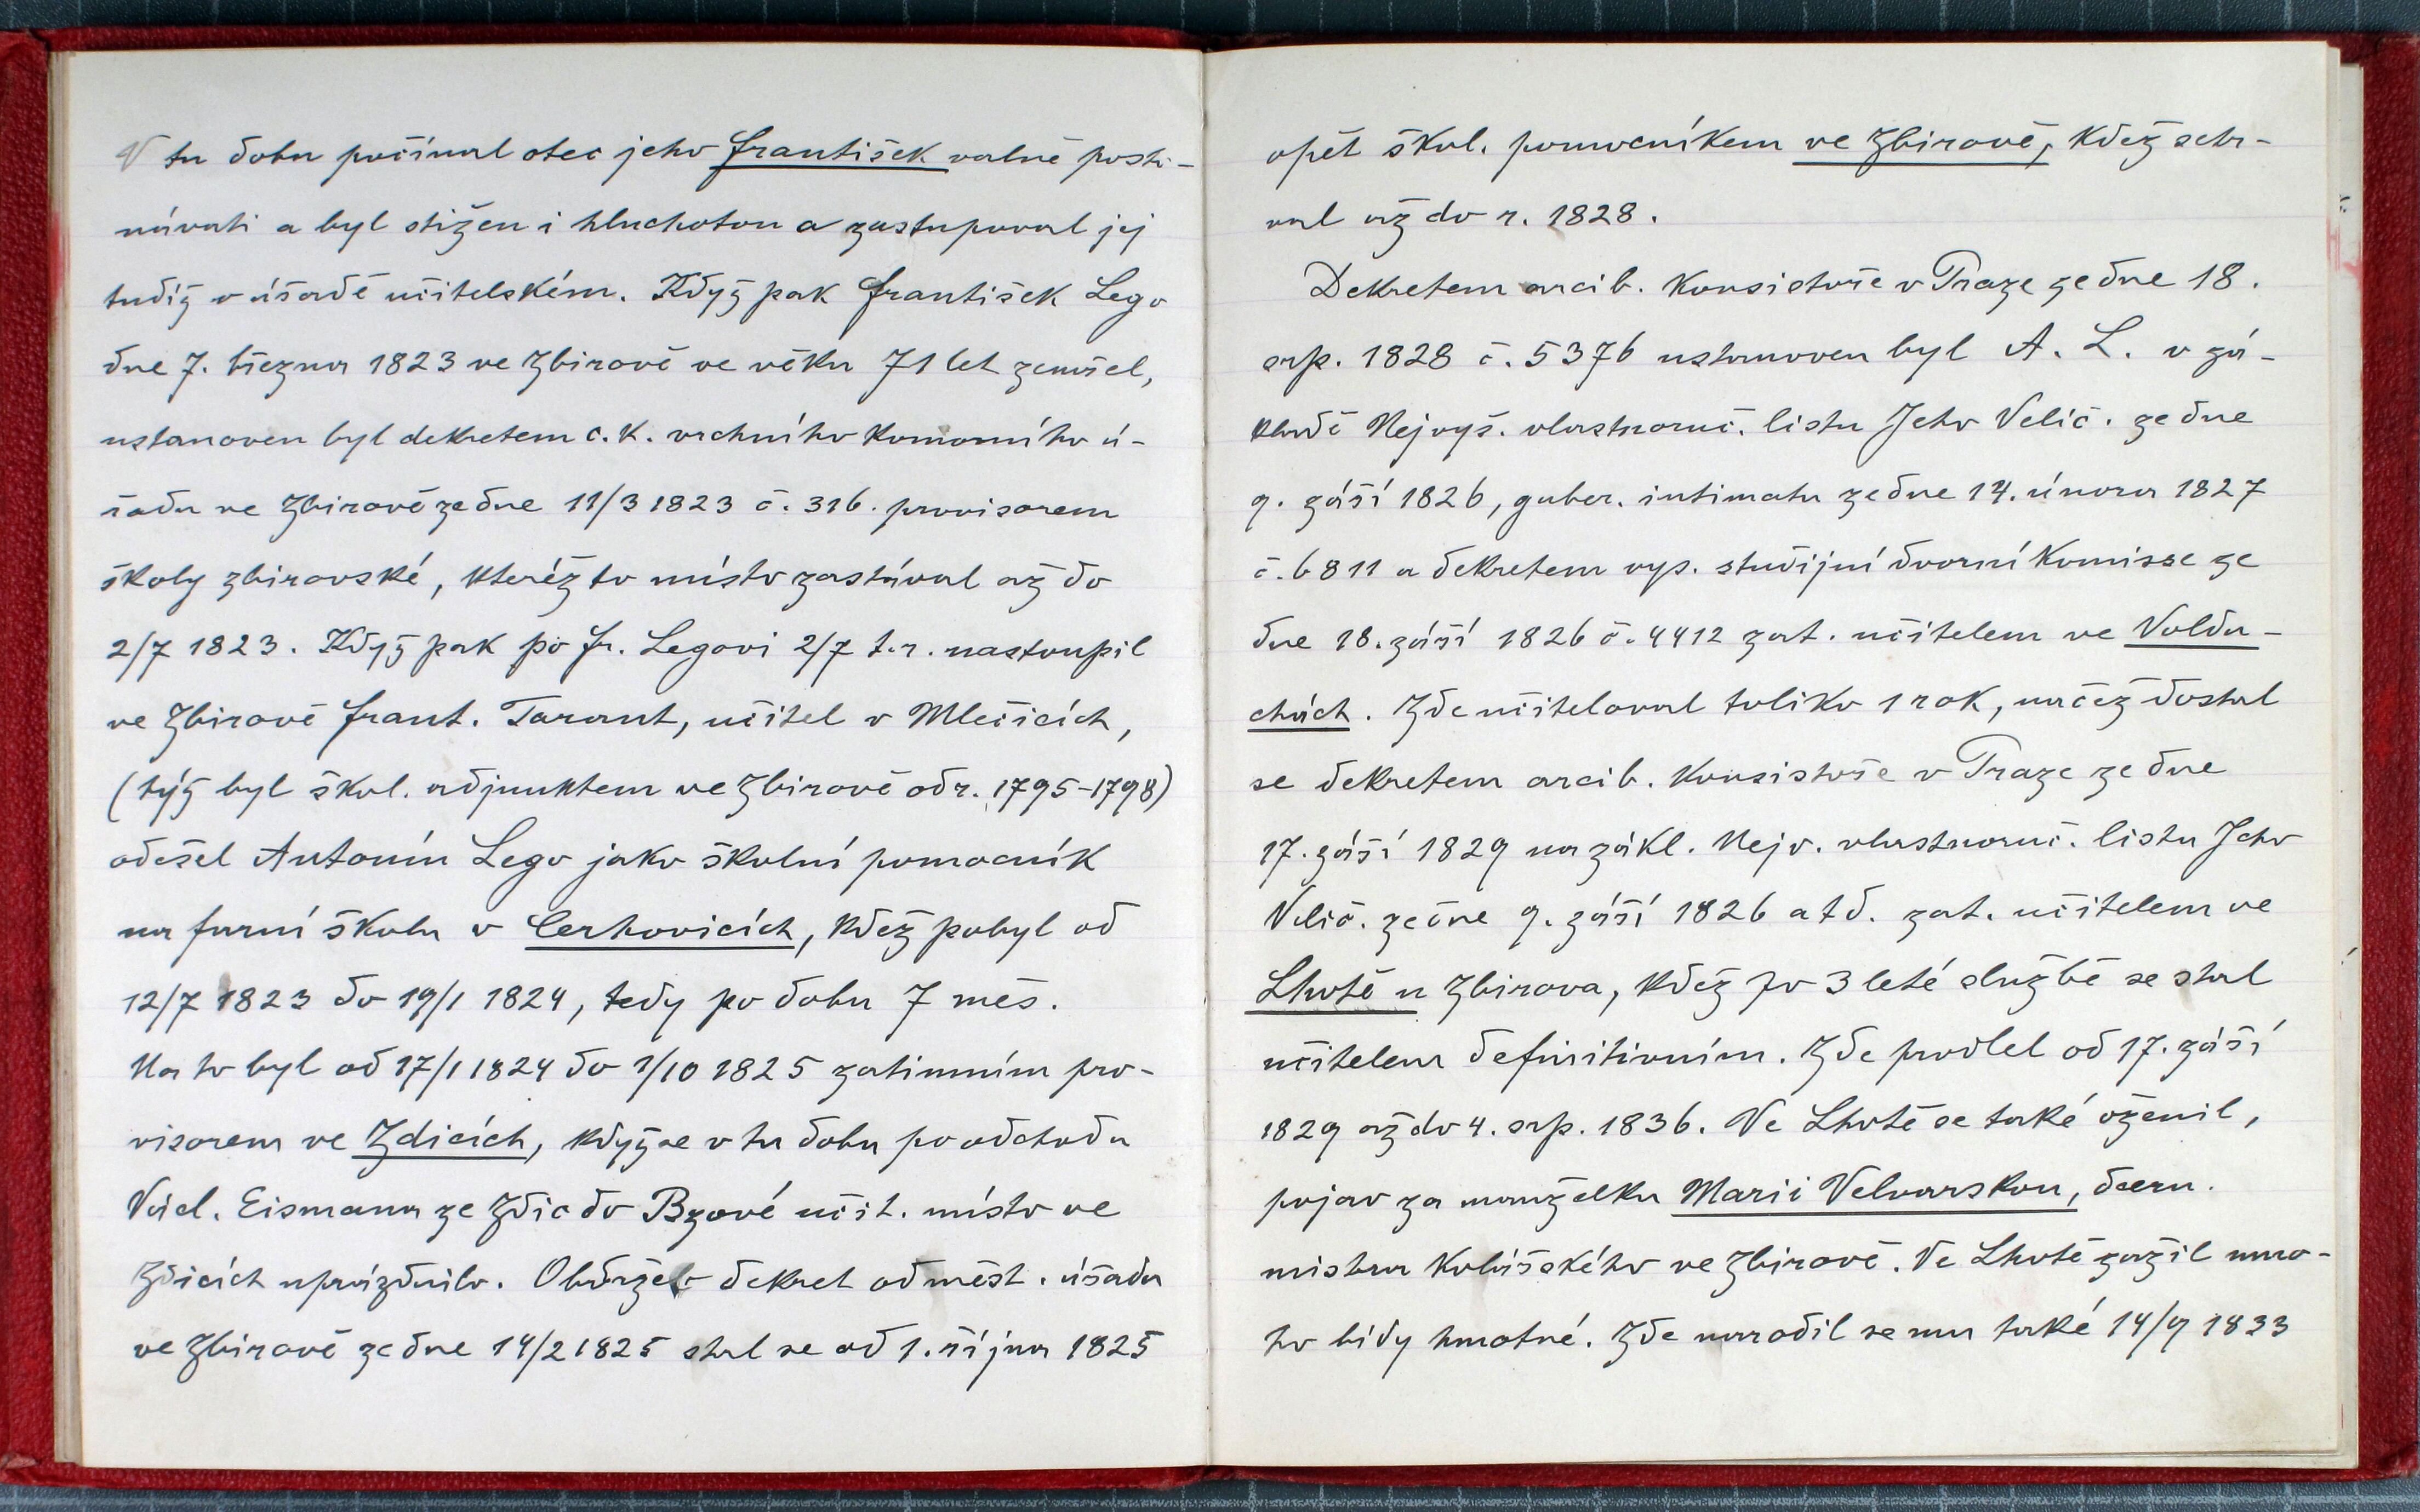 V tu dobu počínal otec jeho František valně posto-
návati a byl stižen i hluchotou a zastupoval jej
tudíž v úřadě učitelském. Když pak František Lego
dne 7. března 1823 ve Zbirově ve věku 71 let zemřel,
ustanoven byl dekretem c. k. vrchního komorního ú-
řadu ve Zbirově ze dne 11/3 1823 č. 316. provisorem
školy zbirovské, kteréžto místo zastával až do
2/7 1823. Když pak po Fr. Legovi 2/7 t. r. nastoupil
ve Zbirově Frant. Tarant, učitel v Mlečicích,
(týž byl škol. adjunktem ve Zbirově od r. 1795-1798)
odešel Antonín Lego jako školní pomocník
na farní školu v Cerhovicích, kdež pobyl od
12/7 1823 do 19/1 1824, tedy po dobu 7 měs.
Na to byl od 17/1 1824 do 1/10 1825 zatimním pro-
visorem ve Zdicích, když se v tu dobu po odchodu
Václ. Eismanna ze Zdic do Bzové učit. místo ve
Zdicích uprázdnilo. Obdržev dekret od měst. úřadu
ve Zbirově ze dne 14/2 1825 stal se od 1. října 1825
opět škol. pomocníkem ve Zbirově, kdež setr-
val až do r. 1828.
Dekretem arcib. konsistoře v Praze ze dne 18.
srp. 1828 č. 5376 ustanoven byl A. L. v zá-
kladě Nejvyš. vlastnoruč. listu Jeho Velič. ze dne
9. září 1826, guber. intimatu ze dne 14. února 1827
č. 6811 a dekretem vys. studijní dvorní komisse ze
dne 18. září 1826 č. 4412 zat. učitelem ve Voldu-
chách. Zde učiteloval toliko 1 rok, načež dostal
se dekretem arcib. konsistoře v Praze ze dne
17. září 1829 na zákl. Nejv. vlastnoruč. listu Jeho
Velič. ze dne 9. září 1826 atd. zat. učitelem ve
Lhotě u Zbirova, kdež po 3 leté službě se stal
učitelem definitivním. Zde prodlel od 17. září
1829 až do 4. srp. 1836. Ve Lhotě se také oženil,
pojav za manželku Marii Velvarskou, dceru
mistra kolářského ve Zbirově. Ve Lhotě zažil mno-
ho bídy hmotné. Zde narodil se mu také 14/9 1833